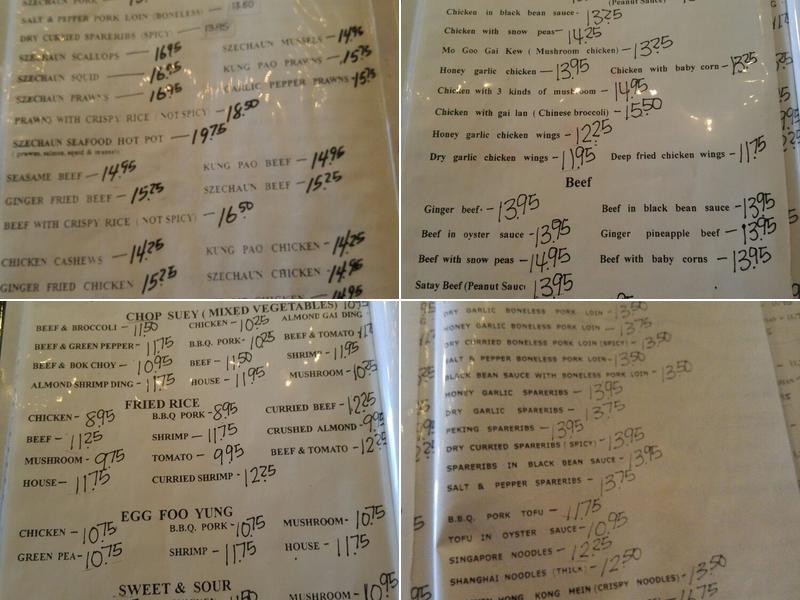 SZECHAUN PORK
SALT & PEPPER PORK LOIN (BONELESS) - 13.50
DRY CURRIED SPARERIBS (SPICY) - 13.95
SZECHAUN SCALLOPS - 16.95
SZECHAUN MUSSELS - 14.95
SZECHAUN SQUID - 16.95
KUNG PAO PRAWNS - 15.75
SZECHAUN PRAWNS - 16.95
GARLIC PEPPER PRAWNS - 15.75
PRAWNS WITH CRISPY RICE (NOT SPICY) - 18.50
SZECHAUN SEAFOOD HOT POT - 19.75
( prawns, salmon, squid & mussels)
SEASAME BEEF - 14.95
KUNG PAO BEEF - 14.95
GINGER FRIED BEEF - 15.25
SZECHAUN BEEF - 15.25
BEEF WITH CRISPY RICE (NOT SPICY) - 16.50
CHICKEN CASHEWS - 14.25
KUNG PAO CHICKEN - 14.25
GINGER FRIED CHICKEN 15.25
SZECHAUN CHICKEN - 14.95
CHICKEN - 14.95
(Peanut Sauce)
Chicken in black bean sauce - 13.25
Chicken with snow peas - 14.25
Mo Goo Gai Kew ( Mushroom chicken) - 13.25
Honey garlic chicken - 13.95
Chicken with baby corn - 13.25
Chicken with 3 kinds of mushroom - 14.95
Chicken with gai lan ( Chinese broccoli) - 15.50
Honey garlic chicken wings - 12.25
Dry garlic chicken wings - 11.95
Deep fried chicken wings - 11.75
Beef
Ginger beef - 13.95
Beef in black bean sauce - 13.95
Beef in oyster sauce - 13.95
Ginger pineapple beef - 13.95
Beef with snow peas - 14.95
Beef with baby corns - 13.95
Satay Beef (Peanut Sauce 13.95
CHOP SUEY ( MIXED VEGETABLES) 10.75
BEEF & BROCCOLI - 11.50
CHICKEN - 10.25
ALMOND GAI DING
BEEF & GREEN PEPPER - 11.75
B.B.Q. PORK - 10.25
BEEF & TOMATO
BEEF & BOK CHOY - 10.95
BEEF - 11.50
SHRIMP - 11.95
ALMOND SHRIMP DING - 11.75
HOUSE - 11.95
MUSHROOM - 10.25
FRIED RICE
CHICKEN - 8.95
B.B.Q PORK - 8.95
CURRIED BEEF - 12.25
BEEF - 11.25
SHRIMP - 11.75
CRUSHED ALMOND - 9.95
MUSHROOM - 9.75
TOMATO - 9.95
BEEF & TOMATO - 12.25
HOUSE - 11.75
CURRIED SHRIMP - 12.25
EGG FOO YUNG
CHICKEN - 10.75
B.B.Q. PORK - 10.75
MUSHROOM - 10.75
GREEN PEA - 10.75
SHRIMP - 11.75
HOUSE - 11.75
SWEET & SOUR
MUSHROOM - 10.95
DRY GARLIC BONELESS PORK LOIN - 13.50
HONEY GARLIC BONELESS PORK LOIN - 13.75
DRY CURRIED BONELESS PORK LOIN (SPICY) - 13.50
SALT & PEPPER BONELESS PORK LOIN - 13.50
BLACK BEAN SAUCE WITH BONELESS PORK LOIN - 13.50
HONEY GARLIC SPARERIBS - 13.95
DRY GARLIC SPARERIBS - 13.75
PEKING SPARERIBS - 13.95
DRY CURRIED SPARERIBS (SPICY) - 13.95
SPARERIBS IN BLACK BEAN SAUCE - 13.95
SALT & PEPPER SPARERIBS - 13.75
B.B.Q. PORK TOFU - 11.75
TOFU IN OYSTER SAUCE - 10.95
SINGAPORE NOODLES - 12.25
SHANGHAI NOODLES (THICK) - 12.50
HONG KONG MEIN (CRISPY NOODLES) - 13.50